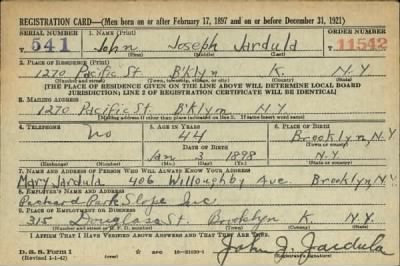 REGISTRATION CARD—(Men born on or after February 17, 1897 and on or before December 31, 1921)
SERIAL NUMBER 1. NAME (Print) ORDER NUMBER
T 541 John Joseph Jardula T 11542
(First) (Middle) (Last)
2. PLACE OF RESIDENCE (Print)
1270 Pacific St B'klyn K. N.Y.
(Number and street) (Town, township, village, or city) (County) (State)
[THE PLACE OF RESIDENCE GIVEN ON THE LINE ABOVE WILL DETERMINE LOCAL BOARD
JURISDICTION; LINE 2 OF REGISTRATION CERTIFICATE WILL BE IDENTICAL]
3. MAILING ADDRESS
1270 Pacific St. B'klyn N.Y.
[Mailing address if other than place indicated on line 2. If same insert word same]
4. TELEPHONE 5. AGE IN YEARS 6. PLACE OF BIRTH
No 44 Brooklyn, N.Y.
DATE OF BIRTH (Town or county)
Jan 3 1898 N.Y.
(Exchange) (Number) (Mo.) (Day) (Yr.) (State or country)
7. NAME AND ADDRESS OF PERSON WHO WILL ALWAYS KNOW YOUR ADDRESS
Mary Jardula 406 Willoughby Ave Brooklyn, N.Y.
8. EMPLOYER'S NAME AND ADDRESS
Packard Park Slope Inc
9. PLACE OF EMPLOYMENT OR BUSINESS
315 Douglass St. Brooklyn K. N.Y.
(Number and street or R. F. D. number) (Town) (County) (State)
I AFFIRM THAT I HAVE VERIFIED ABOVE ANSWERS AND THAT THEY ARE TRUE.
D. S. S. Form 1
(Revised 1-1-42) (over) John J. Jardula